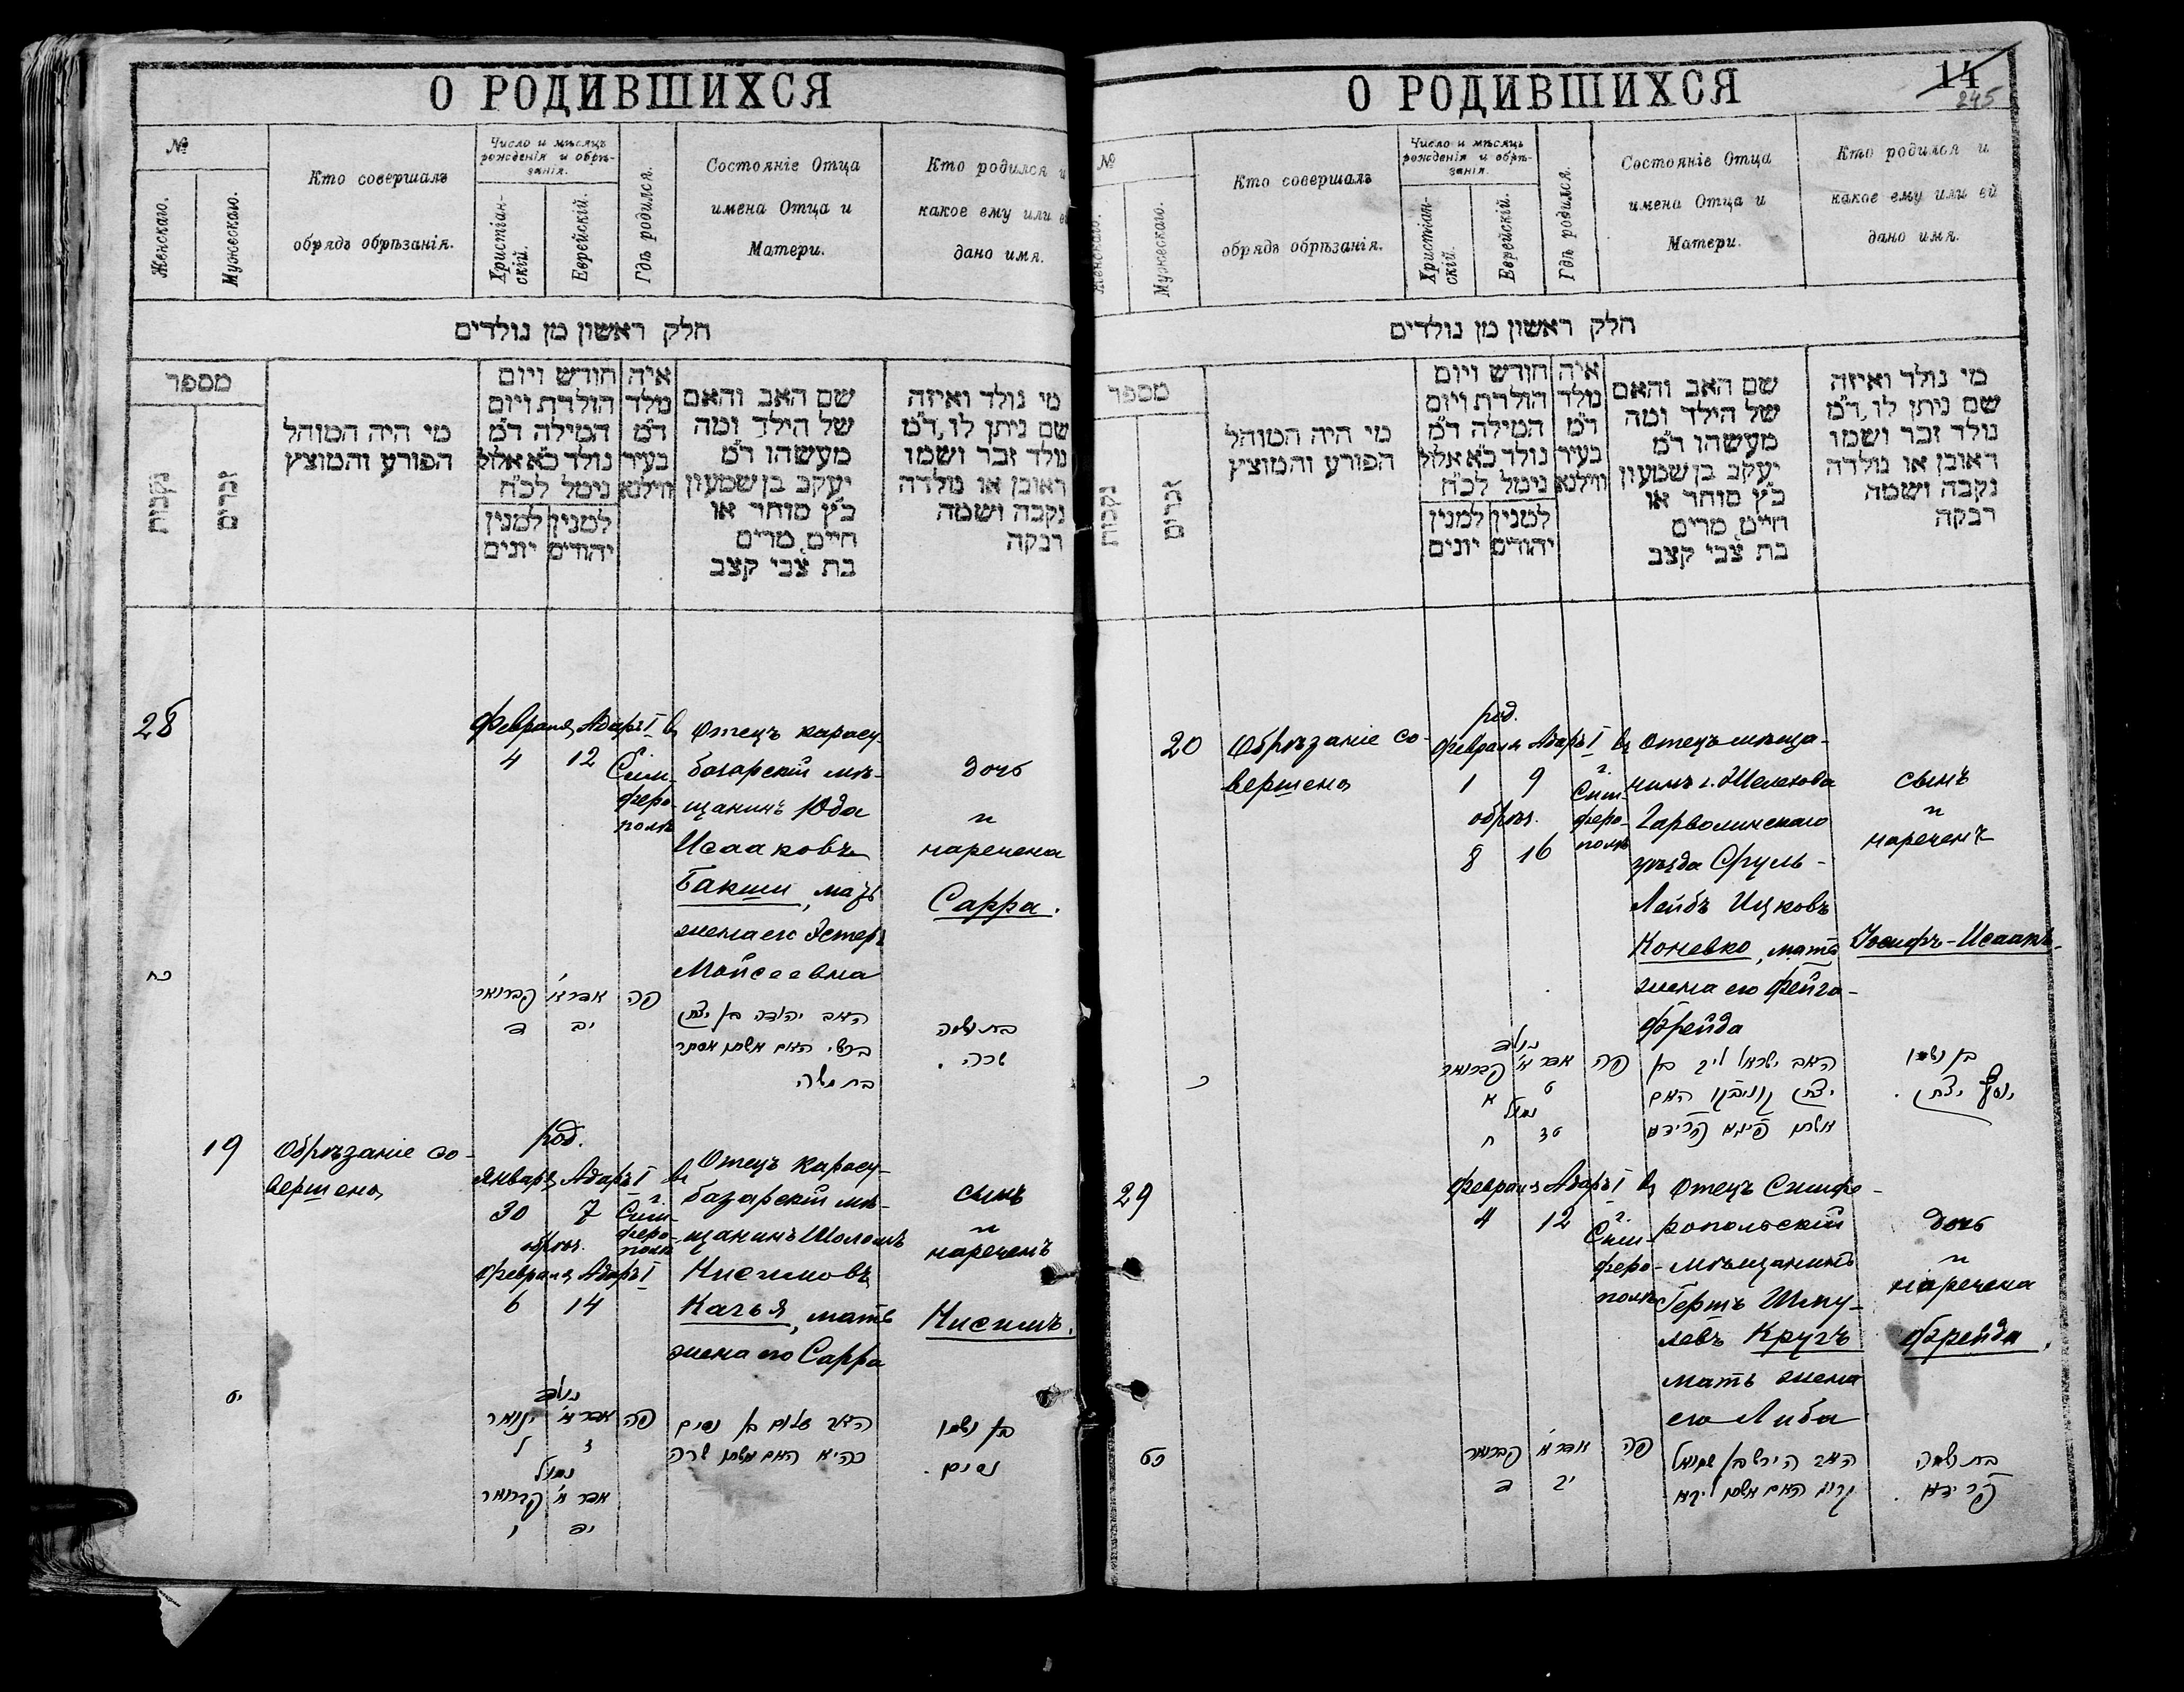 О РОДИВШИХСЯ
№
Женскаго.
Мужескаго.
Кто совершалъ
обрядъ обрѣзанія.
Число и мѣсяцъ
рожденія и обрѣ-
занія.
Христіан-
скій.
Еврейскій.
Гдѣ родился.
Состояніе Отца
имена Отца и
Матери.
Кто родился и
какое ему или ей
дано имя.
חלק ראשון מן נולדים
מספר
נקבות
זכרים
מי היה המוהל
הפורע והמוצץ
חודש ויום
הולדת ויום
המילה ד״מ
נולד כ״א אלול
נימל לכ״ח
למנין למנין
יהודים יונים
איה
מלד
ד״מ
בעיר
ווילנא
שם האב והאם
של הילד ומה
מעשהו ד״מ
יעקב בן שמעון
כ״ץ סוחר או
חייט מרים
בת צבי קצב
מי נולד ואיזה
שם ניתן לו ד״מ
נולד זכר ושמו
ראובן או נולדה
נקבה ושמה
רבקה
28
Февраля Адаръ I
4 12
въ
Сим-
феро-
полѣ
Отецъ карасу-
базарскій мѣ-
щанинъ Юда
Исааковъ
Бакши, мать
жена его Эстеръ
Мойсеевна
дочь
и
наречена
Сарра.
כח
אדר א׳ פברואר
יב ד
פה
האב יהודה בן יצחק
בקשי האם אשתו אסתר
בת משה
בת ושמה
שרה.
19
Обрѣзаніе со-
вершено
род.
Января Адаръ I
30 7
обрѣз.
Февраля Адаръ I
6 14
въ
г.
Сим-
феро-
полѣ
Отецъ карасу-
базарскій мѣ-
щанинъ Шоломъ
Нисимовъ
Качья, мать
жена его Сарра
сынъ
и
нареченъ
Нисимъ.
יט
נולד
אדר א׳ ינואר
ז ל
נמול
אדר א׳ פברואר
יד ו
פה
האב שלום בן נסים
האם אשתו שרה
בן ושמו
נסים.
О РОДИВШИХСЯ
14
245
№
Женскаго.
Мужескаго.
Кто совершалъ
обрядъ обрѣзанія.
Число и мѣсяцъ
рожденія и обрѣ-
занія.
Христіан-
скій.
Еврейскій.
Гдѣ родился.
Состояніе Отца
имена Отца и
Матери.
Кто родился и
какое ему или ей
дано имя.
חלק ראשון מן נולדים
מספר
נקבות
זכרים
מי היה המוהל
הפורע והמוצץ
חודש ויום
הולדת ויום
המילה ד״מ
נולד כ״א אלול
נימל לכ״ח
למנין למנין
יהודים יונים
איה
מלד
ד״מ
בעיר
ווילנא
שם האב והאם
של הילד ומה
מעשהו ד״מ
יעקב בן שמעון
כ״ץ סוחר או
חייט מרים
בת צבי קצב
מי נולד ואיזה
שם ניתן לו ד״מ
נולד זכר ושמו
ראובן או נולדה
נקבה ושמה
רבקה
20
Обрѣзаніе со-
вершено
род.
Февраля Адаръ I
1 9
обрѣз.
8 16
въ
г.
Сим-
феро-
полѣ
Отецъ мѣща-
нинъ г. Желехова
Гарволинскаго
уѣзда Сруль-
Лейбъ Ицковъ
Коневко, мать
жена его Фейга-
Фрейда
сынъ
и
нареченъ
Іосифъ-Исаакъ.
כ
נולד
אדר א׳ פברואר
ט א
נמול
טז ח
פה
האב ישראל ליב בן
יצחק קוניבקו האם
אשתו פיגא פריידא
בן ושמו
יוסף יצחק.
29
Февраля Адаръ I
4 12
въ
г.
Сим-
феро-
полѣ
Отецъ Симфе-
ропольскій
мѣщанинъ
Гершъ Шму-
левъ Кругъ
мать жена
его Либа
дочь
и
наречена
Фрейда.
כט
אדר א׳ פברואר
יב ד
פה
האב הירש בן שמואל
קרוג האם אשתו ליבא
בת ושמה
פריידא.